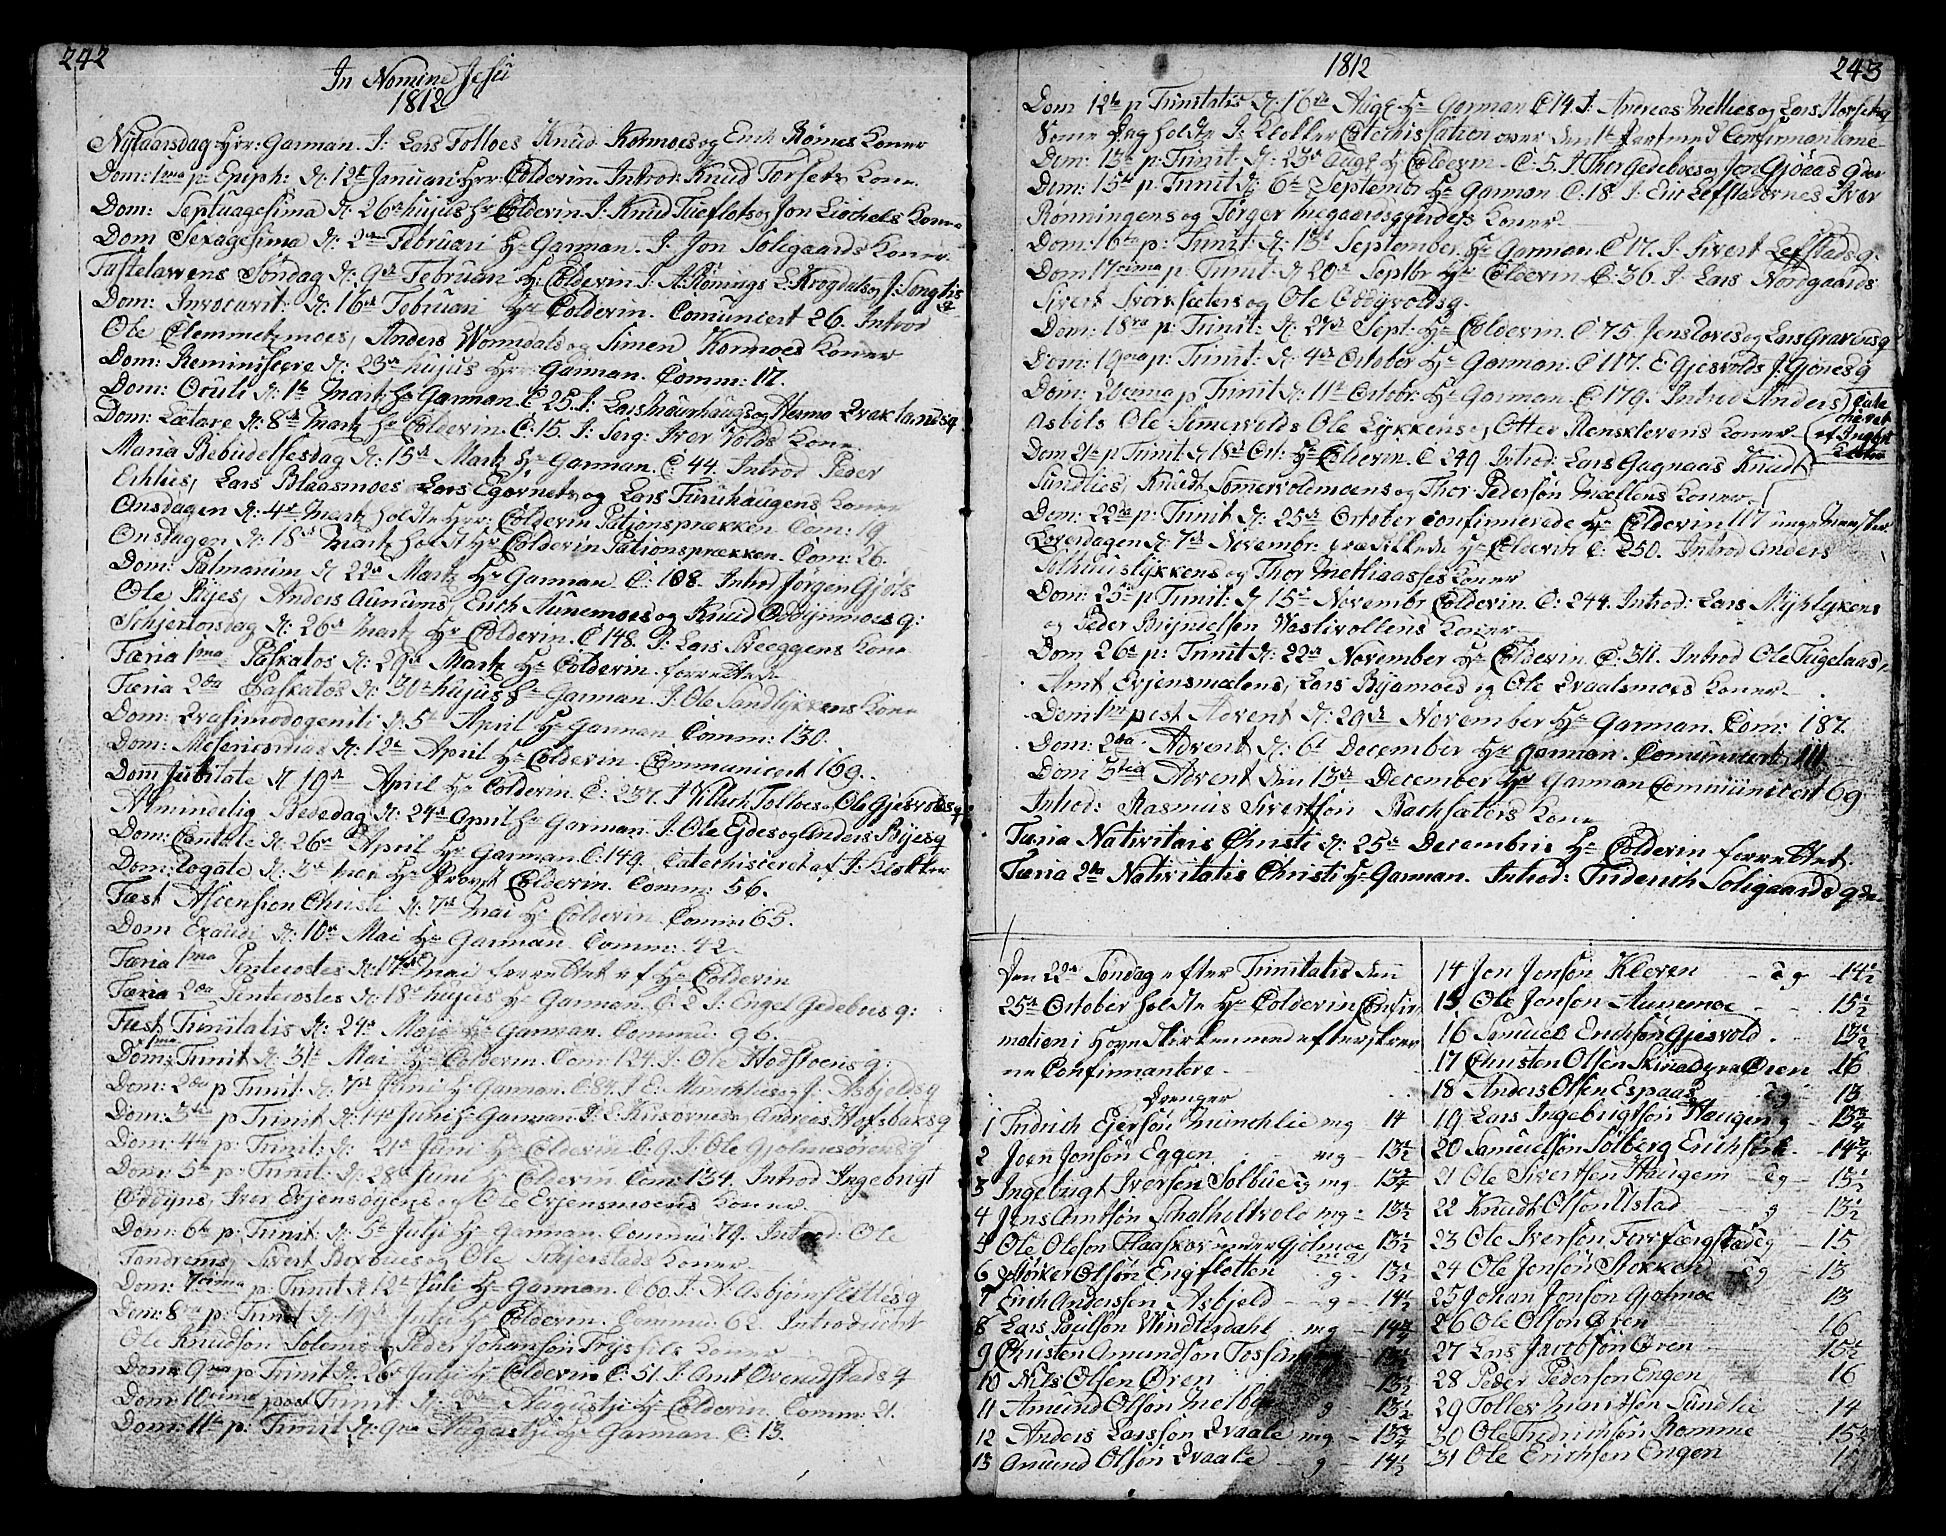 242
In Nomine Jesu
1812
Nytaarsdag Hrr: Garman. I: Lars Tolloes Knud Kormoes og Erich Römes Koner
Dom: 1ma p: Epiph: d: 12t Januari Hrr: Colderin. Introd: Knud Torsets Kone
Dom: Septuagesima d: 26de hujus Hr Colderin. I: Knud og Jon Kone
Dom Sexagesima d: 2den Februari Hr Garman. I: Jon Solegaards Koner.
Fastelavvens Söndag d: 9de Februari Hr Colderin. I: A: L: Krogdals og J:
Dom: Invocavit: d: 16de Februari Hr Colderin. Comunicert 26. Introd
Ole Clemmetzmoes, Anders Wormdals og Simen Kormoes Koner
Dom: Reminiscere d: 23de hujus Hrr Garman. Comm: 17.
Dom: Oculi d: 1te Mart: Hr Garman. C 25. I: Lars og
Dom: Lætare d: 8de Martz Hr Colderin. C: 15. I: Serg: Iver Volds Kone
Maria Bebudelsesdag d: 15de Martz Hr Garman. C: 44. Introd Peder
Erkhus, Lars Blaasmoes Lars Egarnets og Lars Furuhaugens Koner
Onsdagen d: 4de Martz holdte Hrr: Colderin Pationsprækken Com: 19
Onstagen d: 18de Martz holdt Hr Colderin Pationsprækken. Com: 26.
Dom: Palmarum d 22de Martz Hr Garman. C: 108. Introd Jörgen Gjöls
Ole Byes, Anders Aunums, Erich Aunemoes og Knud Oddÿnmoes q:
Schjertorsdag d: 26de Martz Hr Colderin. C 148. I: Lars Kone
Færia 1ma Paskatos d: 29de Martz Hr Colderin. forrettede
Færia 2da Paskatos d: 30te hujus Hr Garman. I: Ole Sandlykkens Kone
Dom: Qvasimodogeniti d: 5te April Hr Garman Comm: 130.
Dom: Misericordias d: 12te April Hr Colderin. Communicert 169.
Dom Jubilate d 19de April Hr Colderin. C: 237. I Tolloes Ole Gjesvolds q
Almindelig Bededag d: 24de April Hr Garman. I: Ole Ejdes og Anders Byes q
Dom: Cantate d: 26de April Hr Garman. C: 149. Catechiseret af J: Klokker
Dom: Rogate d: 3de Mai Hr Provst Colderin. Comm: 56.
Fæst Ascension Christi d: 7de Mai Hr Colderin. Comm: 65.
Dom Exaudi d: 10de Mai Hr Garman. Comm: 42
Færia 1ma Pentecostes d: 17de Mai forrettet af Hr Colderin
Færia 2da Pentecostes d: 18de hujus Hr Garman. C: 2 I: Engel Gedeboes q:
Fæst Trinitatis d: 24de Maii Hr Garman. Commu: 96.
Dom: 1ma Trinit d: 31te Mai Hr Colderin. Com: 124. I: Ole Hodstoens q:
Dom: 2da p Trinit: d: 7de Juni Hr Garman. C: 84. I E: Munchlies og J: Asbjelds q
Dom: 3tia p Trinit d: 14de Juni Hr Garman. I: L: og Andreas Hofsbaks q
Dom: 4ta p: Trinit: d: 21de Juni Hr Colderin. C: 9. I: Ole Gjolmesörens q
Dom: 5te p: Trinit: d: 28de Juni Hr Colderin. Com: 134. Introd Ingebrigt
Oddÿns, Iver Evjensöyens og Ole Evjensmoens Koner.
Dom: 6te p: Trinit: d: 5te Julii Hr Garman. Commu: 79. Introd: Ole
Tandrems, Sivert Boxbues og Ole Schjerstads Koner
Dom: 7tima p: Trinit d 12te Juli Hr Garman. C 60. I: A. Asbjornslettes q
Dom: 8va p: Trinit d 19de Julii Hr Colderin. Commu: 62. Introducert
Ole Knudsön Solems og Peder Johansön Koner
Dom: 9na p: Trinit d: 26de Julii Hr Colderin C: 51. I: Amt q
Dom: 10tima post Trinit: d: 2den Augustii Hr Colderin. Comm: 21.
Dom: 11te p: Trinit d: 9na Augustii Hr Garman. C: 13.
1812
243
Dom 12te p Trinitatis d: 16de Aug: Hr Garman. C 14 I: Andreas Mellies og Lars
Dag holdte J: Klokker Catechisation over den 1te Part med Confirmanterne
Dom: 13de p: Trinit: d: 23de Aug: Hr Colderin. C: 5. I Thor Gedeboes og Jon Gjöaas q der
Dom: 15de p: Trinit d: 6te Septembr Hr Garman C: 18. I: Eric Lefstadernes Iver
Rönningens og Törger Megaardsgjerdets Koner
Dom: 16te p: Trinit: d: 13de September Hr Garman. C 17. I: Sivert Lefstads q:
Dom: 17tima p: Trinit: d 20de Septbr Hr Colderin. C: 36. I: Lars Nordgaards
Sivert Svorksæters og Ole Oddÿvolds q.
Dom: 18va p: Trinit: d: 27de Sept: Hr Colderin. C 75 Jens og Lars q
Dom: 19na p: Trinit: d: 4de October Hr Garman. C 117. E Gjesvolds J. Gjönes q
Dom: 20tima p Trinit d: 11te Octobr: Hr Garman. C: 179. Introd Anders
Asbøls Ole Somervolds Ole Lykkens, Otter Rensklevens Koner
Dom 21te p Trinit d 18de Oct: Hr Colderin. C 249. Introd: Lars Gagnaas Knudt
Sundlies, Knudt Somervoldmoens og Thor Pedersön Mællens Koner
Dom: 22da p: Trinit d: 25de October confirmerede Hr Colderin 117 unge Mennesker
Löverdagen d: 7de Novembr: prædikkede Hr Colderin C: 250. Introd Anders
Solhuuslykkens og Thor Mathiaasses Koner
Dom: 25te p Trinit: d 15de Novembr Colderin. C: 244. Introd: Lars Myhlykens
og Peder Vastivollens Koner
Dom 26te p: Trinit d: 22de November Hr Colderin. C: 311. Introd Ole Fugelaas,
Amt Evjensmælens, Lars Byamoes og Ole Qvaalsmoes Koner
Dom: 1ma post Advent d: 29de November Hr Garman. Com: 187.
Dom: 2da Advent d: 6te December Hr Garman. Comunicert 111
Dom 3tia Advent den 13de December Hr Garman Communicert 69
Introd: Rasmus Sivertsön Bachsæters Kone
Færia Nativitais Christi d: 25de Decembris Hr Colderin forrettet.
Færia 2da Nativitatis Christi Hr Garman. Introd: Friderich Soligaards q
Den 22de Söndag efter Trinitatis den
25de October holdte Hr Colderin Confir
mation i Hovn Kirken med efterskrev
ne Confirmantere
Drenger
1 Fridrich Ejersön Munchlie mg 14
2 Joen Jonsön Eggen mg 13½
3 Ingebrigt Iversen Solbue mg 13¾
4 Jens Amtsön Schalholtvold mg 13½
5 Ole Oleson Haaskar under Gjolmoe 13½
6 Störker Olsön Engsletten g 13½
7 Erich Andersen Asbjeld g 14½
8 Lars Paulsön Windersdahl mg 14¾
9 Christen Amundson 13½
10 Nils Olsen Ören 13½
11 Amund Olsön Melby g 13½
12 Anders Larssön Qvaale mg 13¾
13 Amund Olsön Qvaale g 14½
14 Jon Jonsön Kleven g 14½
15 Ole Jonsön Aunemoe 15½
16 Samuel Erichsön Gjesvold 13½
17 Christen Olsen Ören 16
18 Anders Olsen Espaas g 13
19 Lars Ingebrigtsön Haugen g 13¾
20 Samuelsön Solberg Erichsön 14¾
21 Ole Sivertsen Haugen g 15½
22 Knudt Olson Ustad g 13½
23 Ole Iversön g 15
24 Ole Jonsön Stokken g 13
25 Johan Jonsön Gjolmoe 13
26 Ole Olsön Ören 16
27 Lars Jacobsön Ören 15½
28 Peder Pedersön Engen 16
29 Tollev Sundlie 14
30 Ole Fridrichsön Romme 15
31 Ole Erichsen Engen